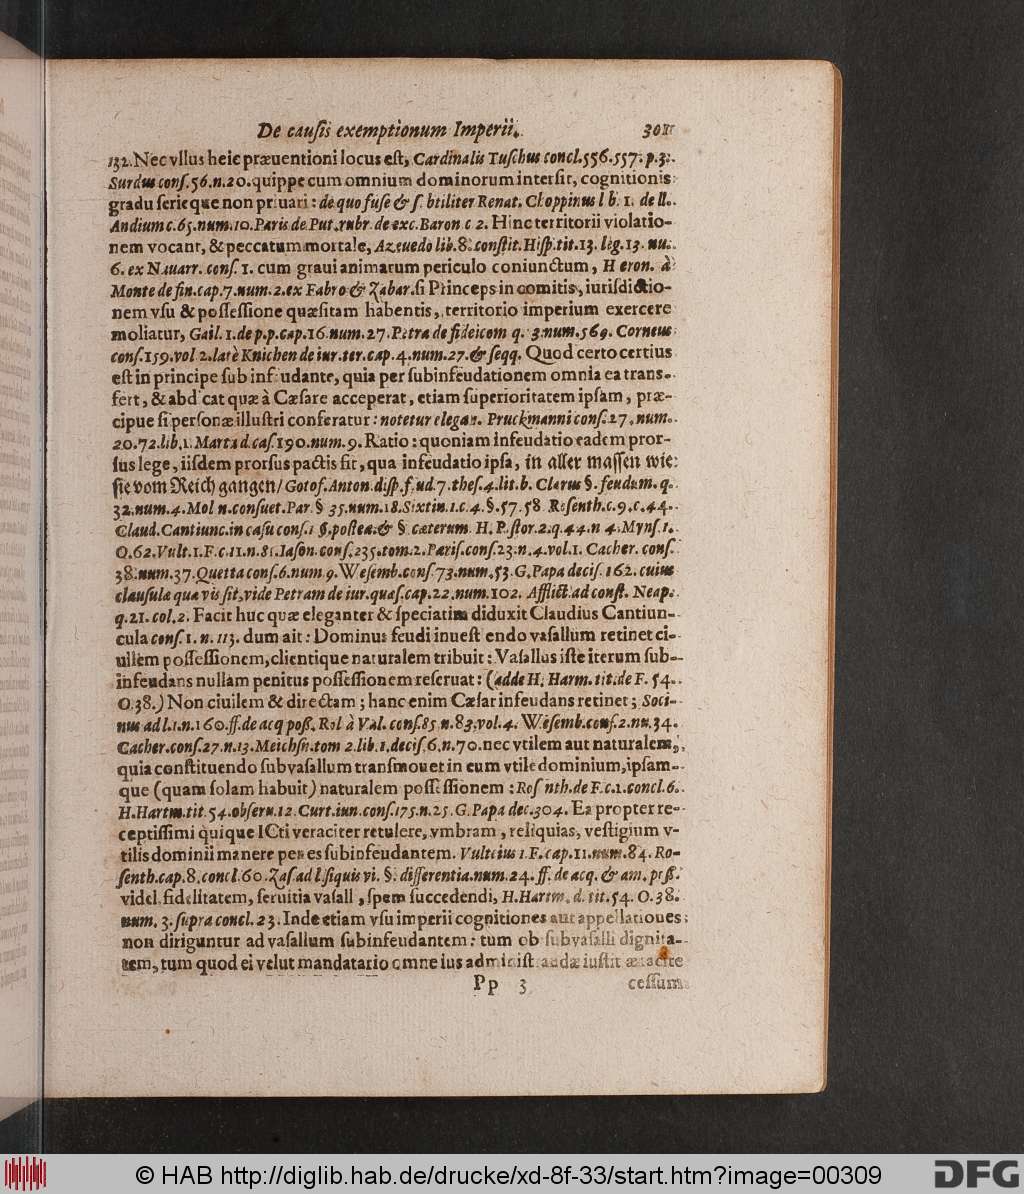 De causis exemptionum Imperii. 301
132. Nec vllus heic præuentioni locus est, Cardinalis Tuschus concl. 556. 557. p. 3.
Surdus cons. 56. n. 20. quippe cum omnium dominorum intersit, cognitionis
gradu serieque non priuari: de quo fuse & s btiliter Renat. Choppinus l b. 1. de ll.
Andium c. 65. num. 10. Paris de Put. rubr. de exc. Baron c 2. Hinc territorii violatio-
nem vocant, & peccatum mortale, Azeuedo lib. 8. constit. Hisp. tit. 13. lig. 13. nu.
6. ex Nauarr. cons. 1. cum graui animarum periculo coniunctum, H eron. à
Monte de fin. cap. 7. num. 2. ex Fabro & Zabar. si Princeps in comitis, iurisdictio-
nem vsu & possessione quæsitam habentis, territorio imperium exercere
moliatur, Gail. 1. de p. p. cap. 16. num. 27. Petra de fideicom q. 3. num. 569. Corneus
cons. 159. vol 2. latè Knichen de iur. ter. cap. 4. num. 27. & seqq. Quod certo certius
est in principe sub inf udante, quia per subinfeudationem omnia ea trans-
fert, & abd cat quæ à Cæsare acceperat, etiam superioritatem ipsam, præ-
cipue si personæ illustri conferatur: notetur elegan. Pruckmanni cons. 27. num.
20. 72. lib. 1. Marta d. cas. 190. num. 9. Ratio: quoniam infeudatio eadem pror-
sus lege, iisdem prorsus pactis fit, qua infeudatio ipsa, in aller massen wie
sie vom Reich gangen/ Gotof. Anton. disp. f. ud. 7. thes. 4. lit. b. Clarus §. feudum. q.
32. num. 4. Mol n. consuet. Par. § 35. num. 18. Sixtin. 1. c. 4. §. 57. 58 Rosenth. c. 9. c. 44.
Claud. Cantiunc. in casu cons. 1 §. postea. & § cæterum. H. P. stor. 2. q. 44. n 4. Myns. 1.
O. 62. Vult. 1. F. c. 11. n. 81. Iason. cons. 235. tom. 2. Paris. cons. 23. n. 4. vol. 1. Cacher. cons.
38. num. 37. Quetta cons. 6. num. 9. Wesemb. cons. 73. num. 53. G. Papa decis. 162. cuius
clausula qua vis sit, vide Petram de iur. quæs. cap. 22. num. 102. Afflict. ad const. Neap.
q. 21. col. 2. Facit huc quæ eleganter & speciatim diduxit Claudius Cantiun-
cula cons. 1. n. 113. dum ait: Dominus feudi inuest endo vasallum retinet ci-
uilem possessionem, clientique naturalem tribuit: Vasallus iste iterum sub-
infeudans nullam penitus possessionem reseruat: (adde H. Harm. tit. de F. 54.
O. 38.) Non ciuilem & directam; hanc enim Cæsar infeudans retinet; Soci-
nus ad l. 1. n. 160. ff. de acq poss. Rol à Val. cons. 85. n. 83. vol. 4. Wesemb. cons. 2. nu. 34.
Cacher. cons. 27. n. 13. Meichsn. tom 2. lib. 1. decis. 6. n. 70. nec vtilem aut naturalem,
quia constituendo subvasallum transmouet in eum vtile dominium, ipsam-
que (quam solam habuit) naturalem poss ssionem: Ros nth. de F. c. 1. concl. 6.
H. Hartm. tit. 54. obseru. 12. Curt. iun. cons. 175. n. 25. G. Papa dec. 304. Ea propter re-
ceptissimi quique ICti veraciter retulere, vmbram, reliquias, vestigium v-
tilis dominii manere penes subinfeudantem. Vulteius 1. F. cap. 11. num. 84. Ro-
senth. cap. 8. concl. 60. Zas ad l. siquis vi. §. differentia. num. 24. ff. de acq. & am. poss.
videl. fidelitatem, seruitia vasall, spem succedendi, H. Hartm. d. tit. 54. O. 38.
num. 3. supra concl. 23. Inde etiam vsu imperii cognitiones aut appellationes
non diriguntur ad vasallum subinfeudantem: tum ob subvasalli dignita-
tem, tum quod ei velut mandatario omne ius administ andæ iustit æ tacite
Pp 3 cessum
© HAB http://diglib.hab.de/drucke/xd-8f-33/start.htm?image=00309 DFG